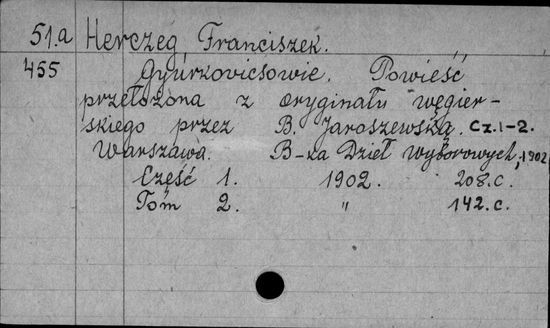 51.a Herczeg, Franciszek.
455 Gyurkovicsowie. Powieść
przełożona z oryginału węgier-
skiego przez B. Jaroszewską. Cz.1-2.
Warszawa. B-ka Dzieł wyborowych, 1902
Część 1. 1902. 208.c.
Tom 2. " 142.c.